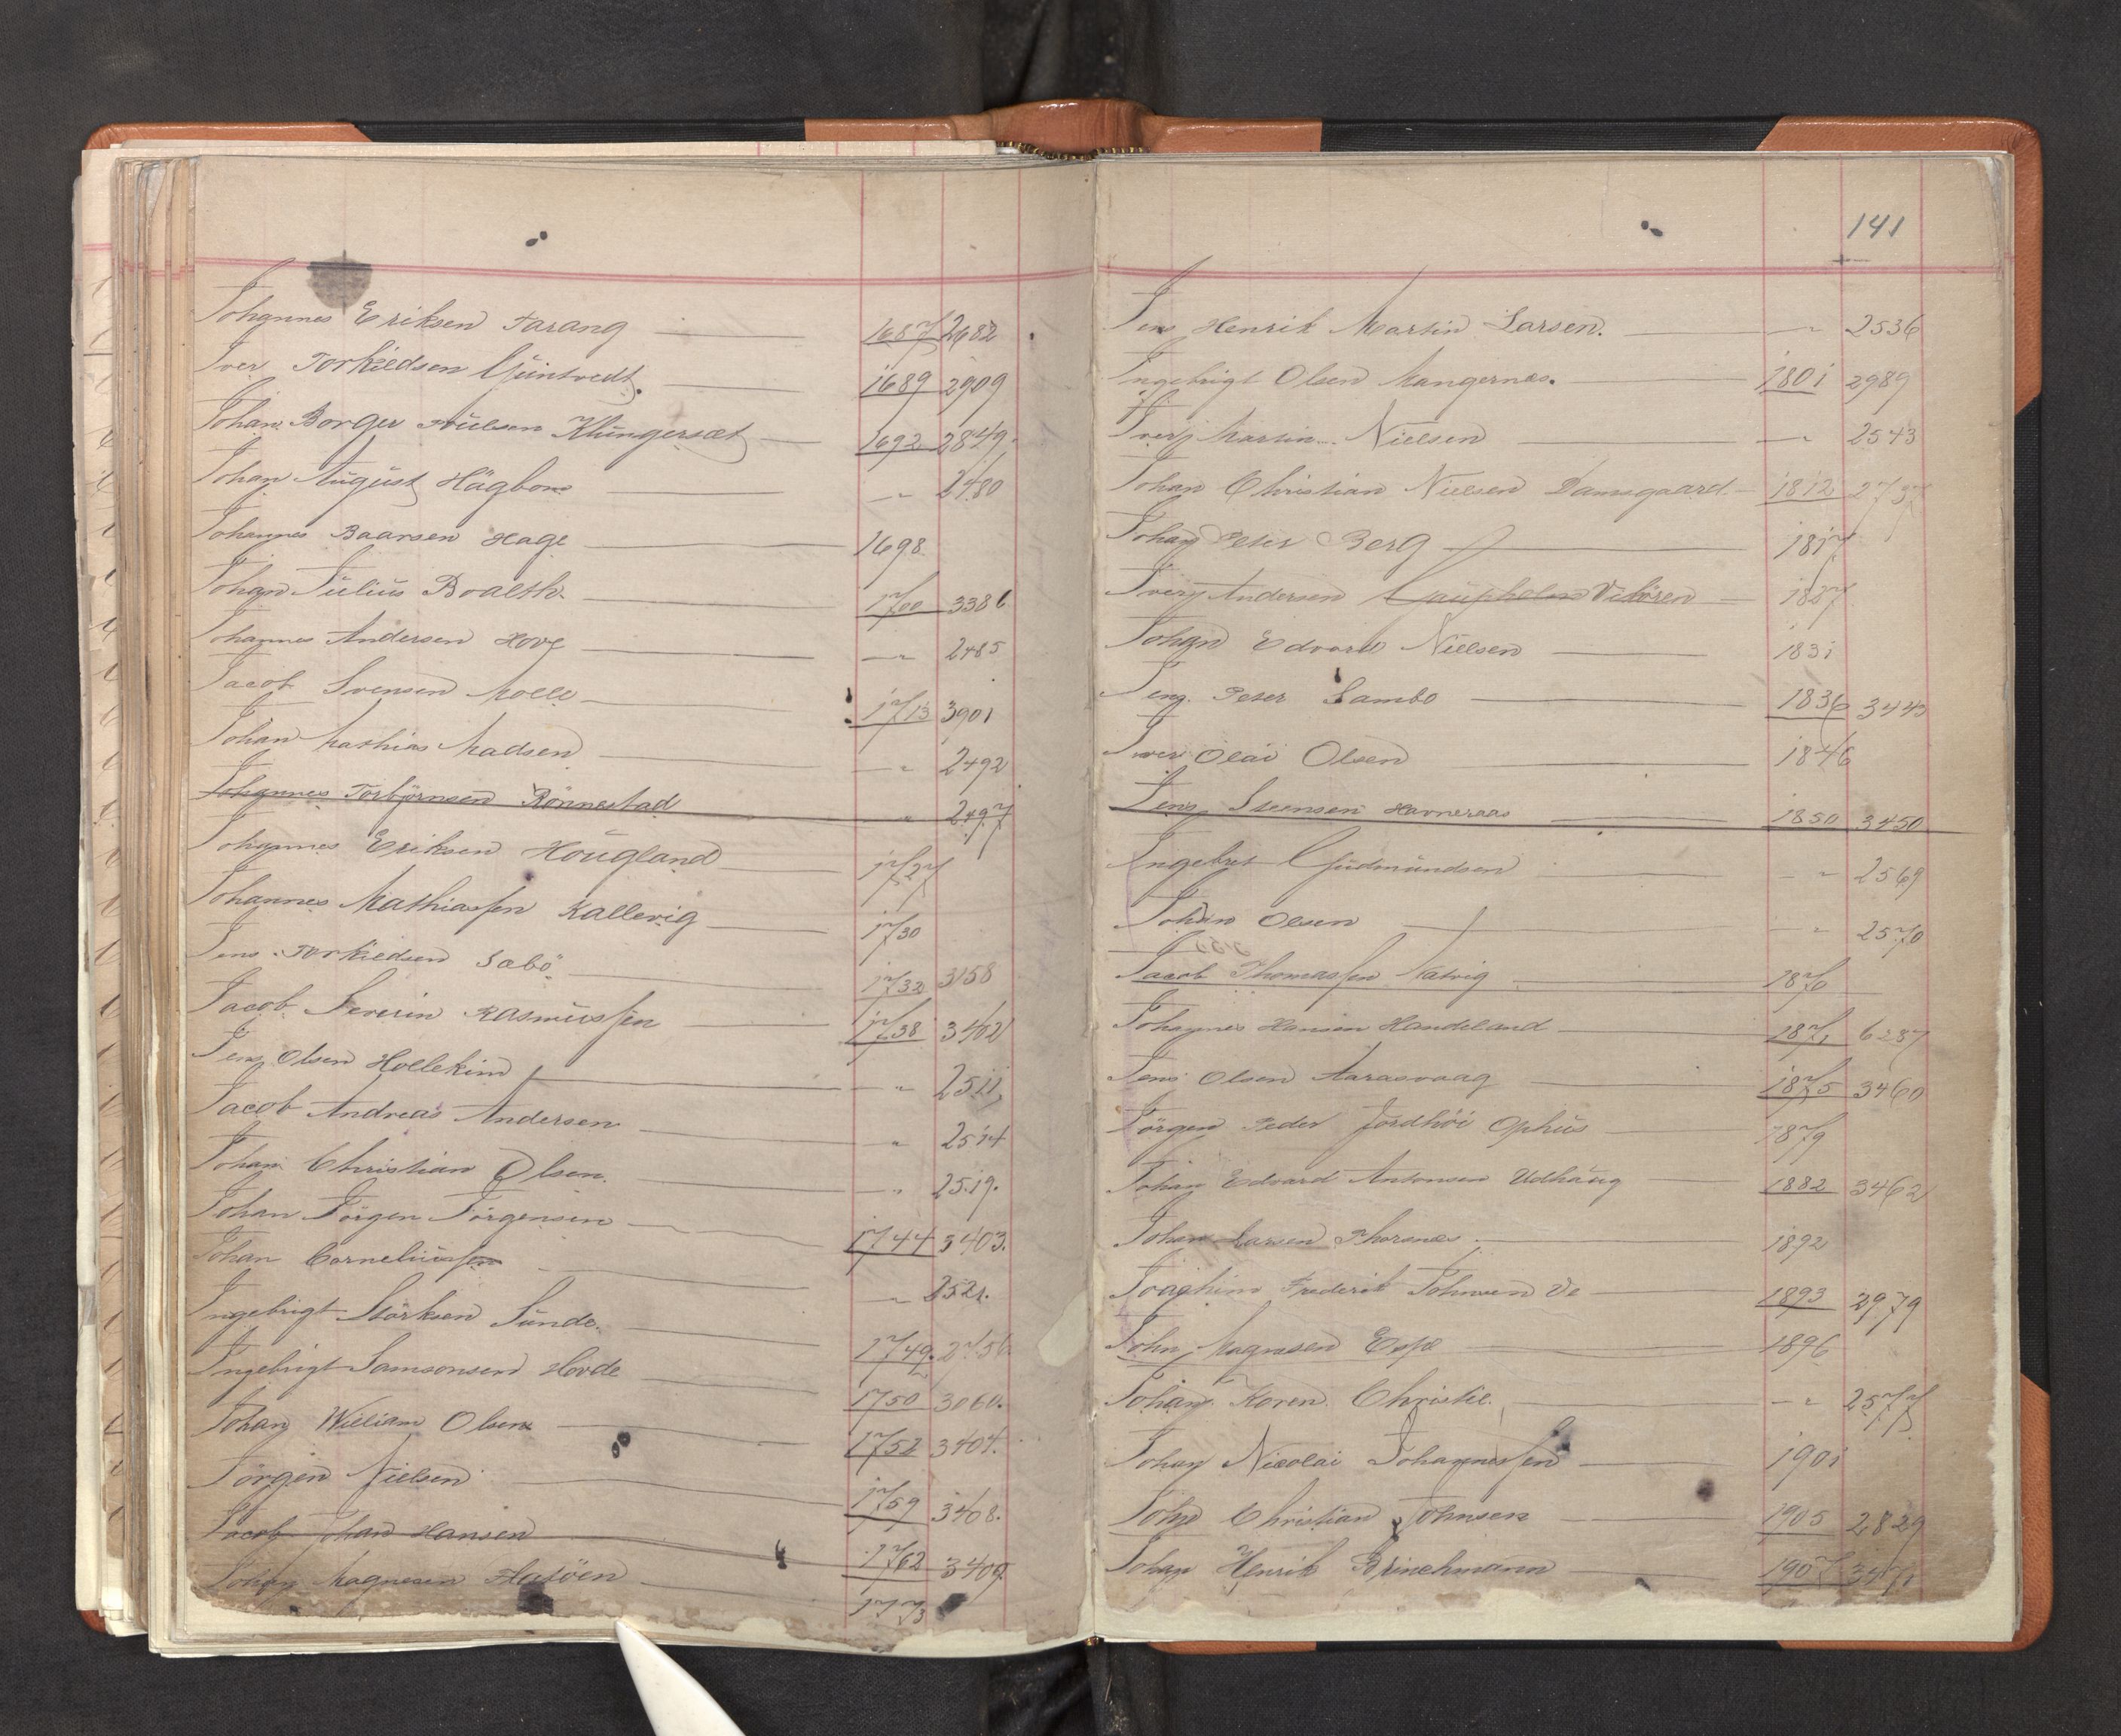 Johannes Eriksen Farang — 1687 2682
Iver Torkildsen Guntvedt. — 1689 2909
Johan Borger Nielsen Klüngersæt — 1692 2849.
Johan August Hägbom — — " 2480
Johannes Baarsen Hage — 1698
Johan Julius Boalth — 1700 3386
Johannes Andersen Hove — — " 2485
Jacob Svensen Molle — 1713 3901
Johan Mathias Madsen — — " 2492
Johannes Torbjørnsen Rönnestad " 2497
Johannes Eriksen Hougland — 1727
Johannes Mathiassen Kallevig — 1730
Jens Torkildsen Sæbö — 1732 3158
Jacob Severin Rasmussen — 1738 3402
Jens Olsen Hollekim — — " 2511
Jacob Andreas Andersen — " 2514
Johan Christian Olsen. — — " 2519.
Johan Jörgen Jörgensen — 1744 3403.
Johan Corneliussen — — " 2521.
Ingebrigt Störksen Sunde. — 1749. 2756
Ingebrigt Samsonsen Hovde — 1750 3060.
Johan William Olsen — 1752 3404.
Jörgen Nielsen — 1759 3408.
Jacob Johan Hansen — 1762 3409
Johan Magnesen Hatöen — 1773
141
Jens Henrik Martin Larsen. — — " 2536
Ingebrigt Olsen Mangernes. — 1801 2989
Iver Martin Nielsen — — " 2543
Johan Christian Nielsen Damsgaard — 1812 2737
Johan Peter Berg — 1817
Iver Andersen Gaupholm Vikören — 1827
Johan Edvard Nielsen — 1831
Jens Peter Lambo — 1836 3443
Iver Olai Olsen — 1846
Jens Steensen Havneraas — 1850 3450
Ingebret Gudmundsen — — " 2569
Johan Olsen — " 2570
Jacob Thomassen Matvig — 1870
Johannes Hansen Handeland — 1871 6287
Jens Olsen Aarasvaag — 1875 3460
Jörgen Peder Jordhöi Ophus — 1879
Johan Edvard Antonsen Udhaug — 1882 3462
Johan Larsen Thorsnes — 1892
Joachim Frederik Johnsen Ve — 1893 2979
John Magnesen Espe — 1896
Johan Koren Christie. — — " 2577
Johan Nicolai Johannessen — 1901
John Christian Johnsen — 1905 2829
Johan Henrik Brinchmann — 1907 3471